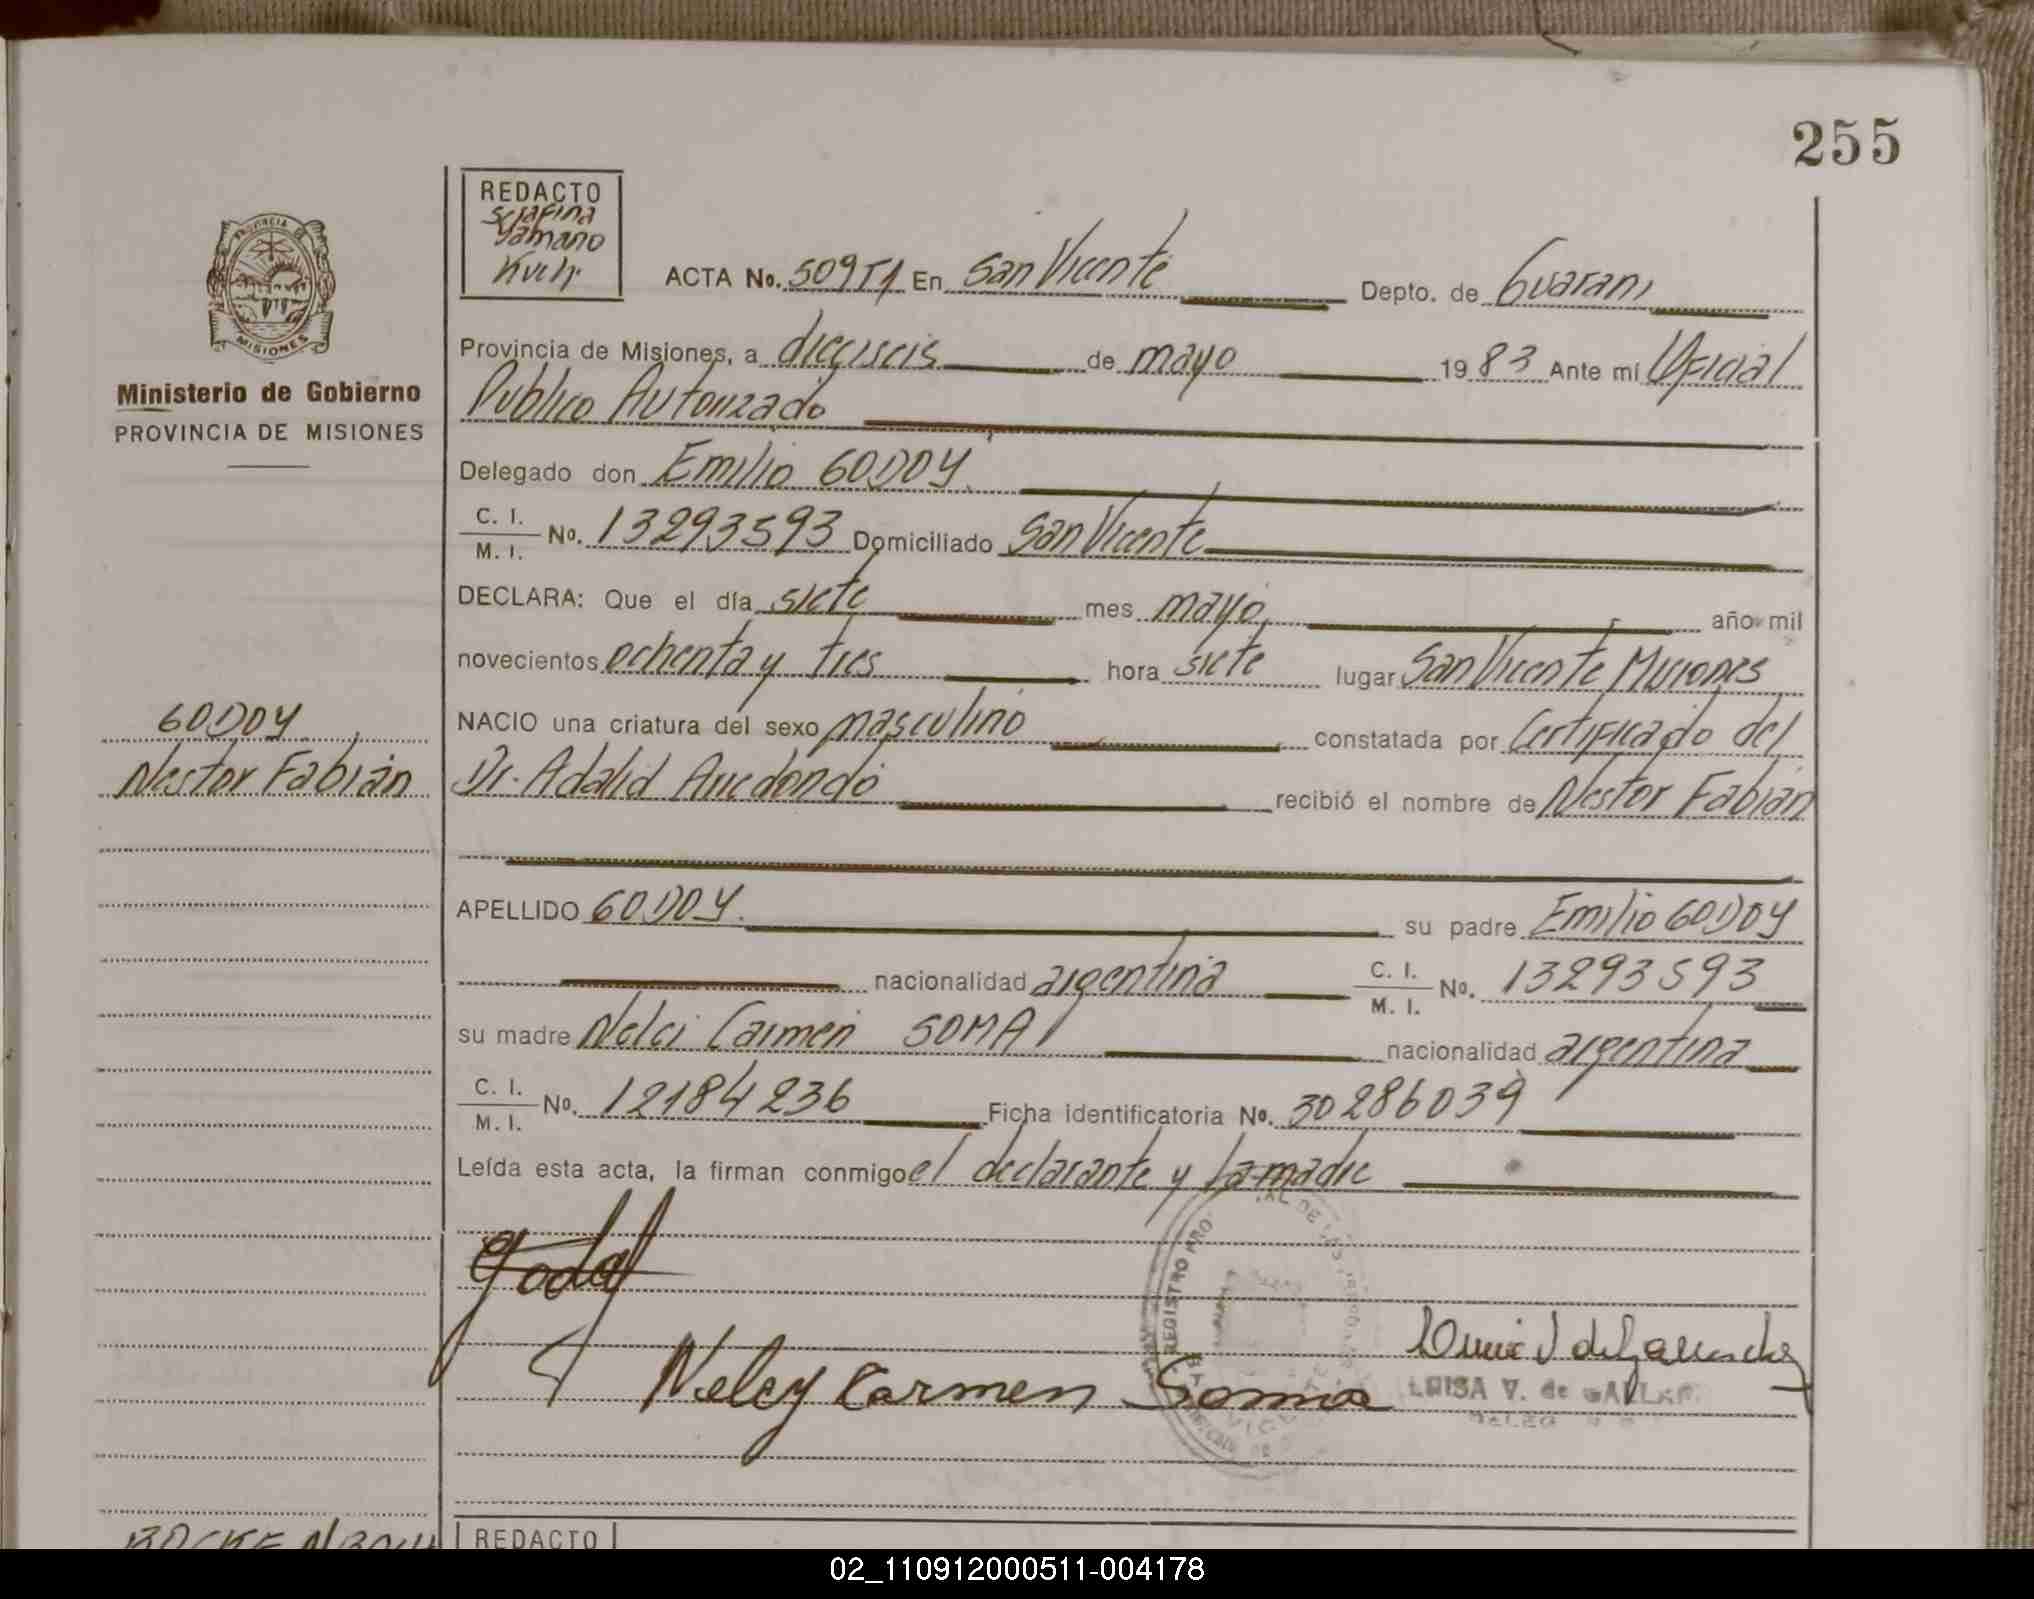 255
REDACTO
Serafina
Yamano
Kuch.
PROVINCIA DE
MISIONES
Ministerio de Gobierno
PROVINCIA DE MISIONES
ACTA No. 509T1 En San Vicente Depto. de Guarani
Provincia de Misiones, a dieciseis de mayo 1983 Ante mi Oficial
Publico Autorizado
Delegado don Emilio GODOY
C. I. / M. I. No. 13293593 Domiciliado San Vicente
DECLARA: Que el día siete mes mayo año mil
novecientos ochenta y tres hora siete lugar San Vicente Misiones
GODOY
Nestor Fabián
NACIO una criatura del sexo masculino constatada por Certificado del
Dr. Adalid Arredondo recibió el nombre de Nestor Fabián
APELLIDO GODOY. su padre Emilio GODOY
nacionalidad argentina C. I. / M. I. No. 13293593
su madre Nelci Carmen SOMA nacionalidad argentina
C. I. / M. I. No. 12184236 Ficha identificatoria No. 30286039
Leída esta acta, la firman conmigo el declarante y la madre
Godoy
Nelcy Carmen Soma
REGISTRO PRO
LUISA V. de
REDACTO
02_110912000511-004178